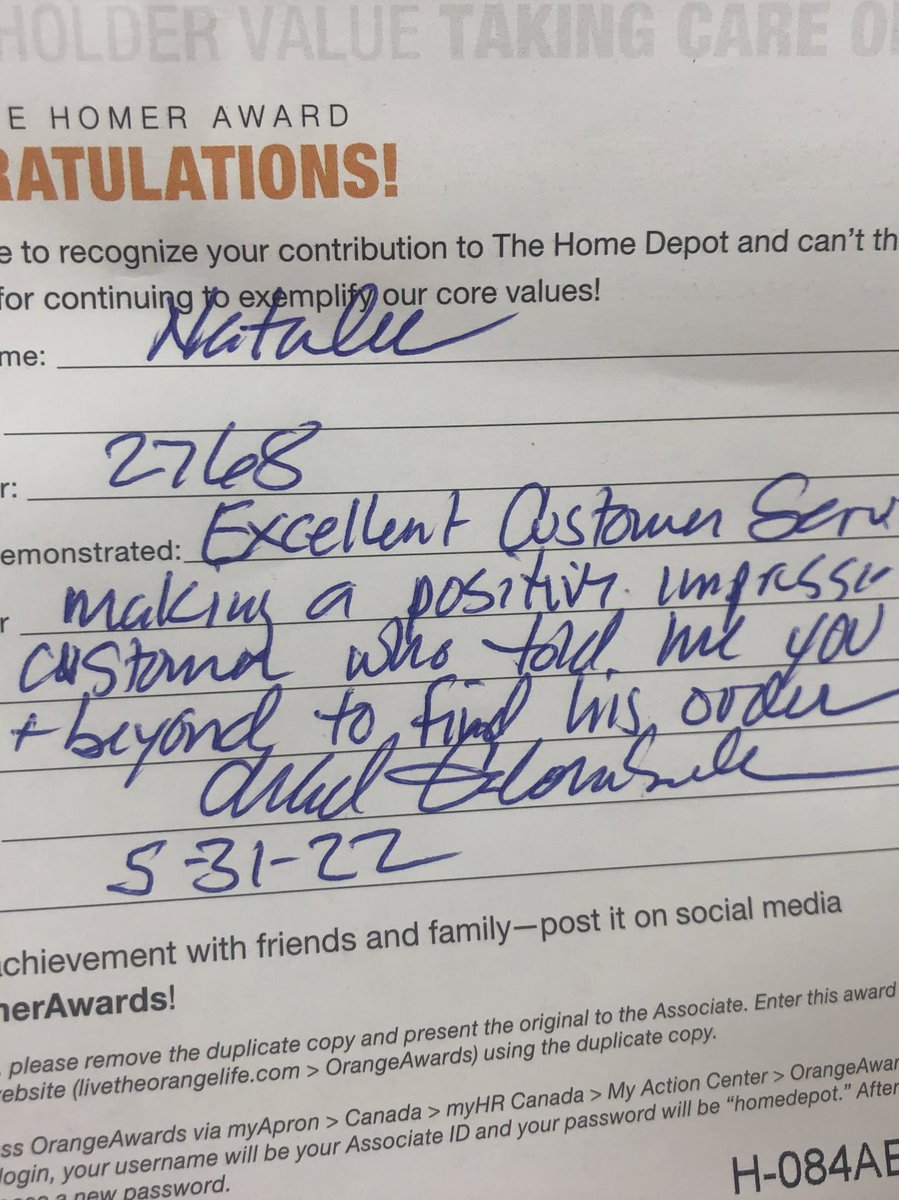 HOLDER VALUE TAKING CARE O
E HOMER AWARD
RATULATIONS!
e to recognize your contribution to The Home Depot and can't th
for continuing to exemplify our core values!
me: Natalie
r: 2768
emonstrated: Excellent Customer Serv
r making a positive impressi
customer who told me you
+ beyond to find his order
5-31-22
achievement with friends and family—post it on social media
nerAwards!
, please remove the duplicate copy and present the original to the Associate. Enter this award
ebsite (livetheorangelife.com > OrangeAwards) using the duplicate copy.
ss OrangeAwards via myApron > Canada > myHR Canada > My Action Center > OrangeAwar
login, your username will be your Associate ID and your password will be "homedepot." After
a new password.
H-084AE